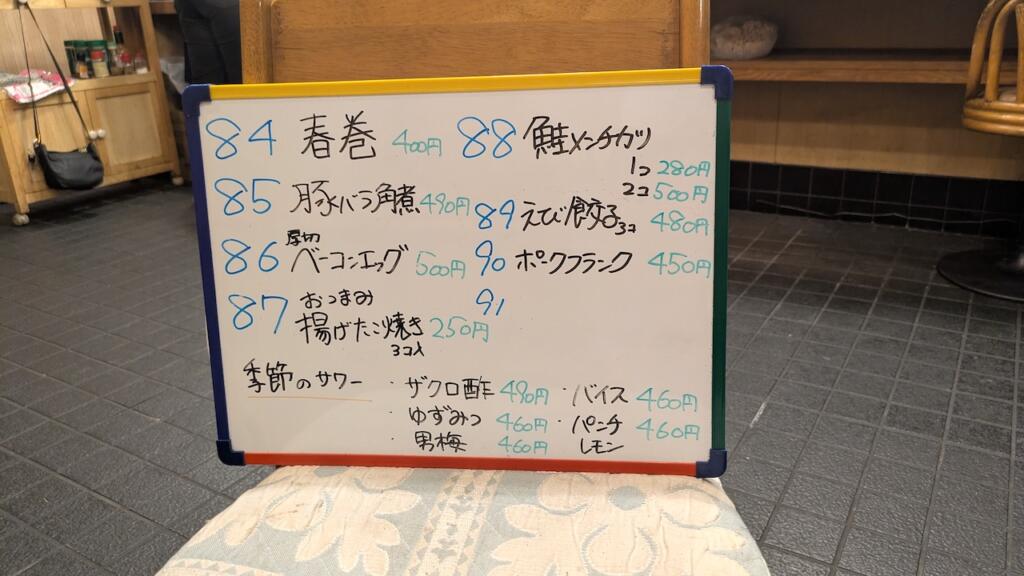 84 春巻 400円
85 豚バラ角煮 490円
厚切
86 ベーコンエッグ 500円
おつまみ
87 揚げたこ焼き 250円
3コ入
88 鮭メンチカツ
1コ 280円
2コ 500円
89 えび餃子 3コ 480円
90 ポークフランク 450円
91
季節のサワー
・ザクロ酢 490円
・ゆずみつ 460円
・男梅 460円
・バイス 460円
・パンチ 460円
レモン